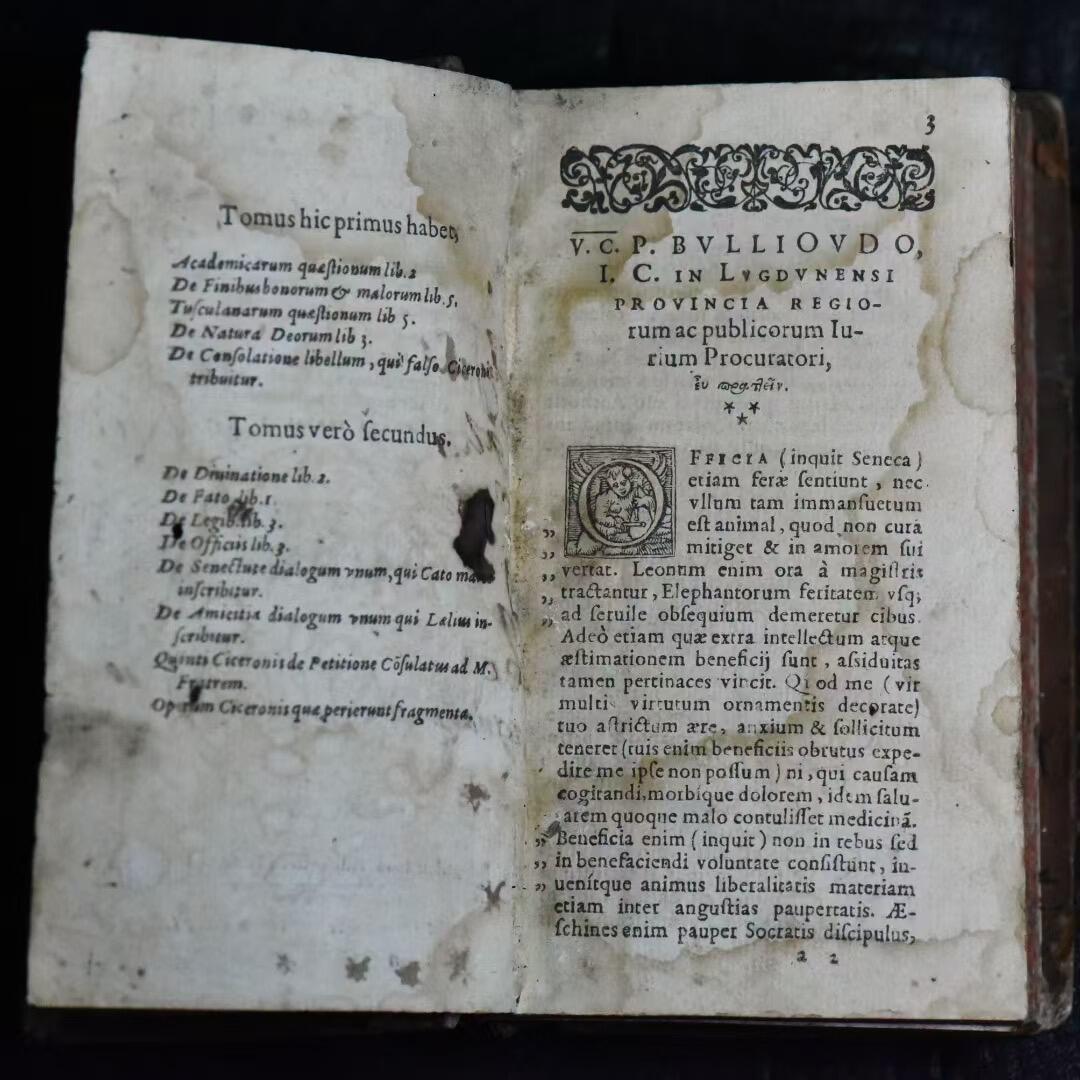 Tomus hic primus habet,
Academicarum quæſtionum lib. 2
De Finibus bonorum & malorum lib. 5.
Tuſculanarum quæſtionum lib 5.
De Natura Deorum lib 3.
De Conſolatione libellum, qui falſo Ciceroni
tribuitur.
Tomus verò ſecundus.
De Diuinatione lib. 2.
De Fato lib. 1
De Legib. lib. 3.
De Officiis lib. 3.
De Senectute dialogum vnum, qui Cato
inſcribitur.
De Amicitia dialogum vnum qui Lælius in-
ſcribitur.
Quinti Ciceronis de Petitione Cõſulatus ad M.
Fratrem.
Operum Ciceronis quæ perierunt fragmenta.
3
V. C. P. BVLLIOVDO,
I. C. IN LVGDVNENSI
PROVINCIA REGIO-
rum ac publicorum Iu-
rium Procuratori,
εὖ πράττειν.
OFFICIA (inquit Seneca)
etiam feræ ſentiunt, nec
vllum tam immanſuetum
eſt animal, quod non cura
„ mitiget & in amorem ſui
„ vertat. Leonum enim ora à magiſtris
„ tractantur, Elephantorum feritatem vſq;
„ ad ſeruile obſequium demeretur cibus.
Adeò etiam quæ extra intellectum atque
æſtimationem beneficij ſunt, aſsiduitas
tamen pertinaces vincit. Quod me (vir
multis virtutum ornamentis decorate)
tuo aſtrictum ære, anxium & ſollicitum
teneret (tuis enim beneficiis obrutus expe-
dire me ipſe non poſſum) ni, qui cauſam
cogitandi, morbique dolorem, idem ſalu-
arem quoque malo contuliſſet medicinã.
„ Beneficia enim (inquit) non in rebus ſed
„ in benefaciendi voluntate conſiſtunt, in-
„ uenítque animus liberalitatis materiam
etiam inter anguſtias paupertatis. Æ-
ſchines enim pauper Socratis diſcipulus,
a 2